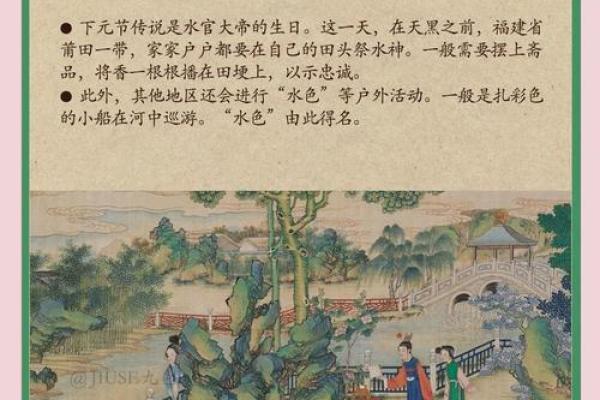 ● 下元节传说是水官大帝的生日。这一天，在天黑之前，福建省
莆田一带，家家户户都要在自己的田头祭水神。一般需要摆上斋
品，将香一根根播在田埂上，以示忠诚。
● 此外，其他地区还会进行“水色”等户外活动。一般是扎彩色
的小船在河中巡游。“水色”由此得名。
@JIUSE九